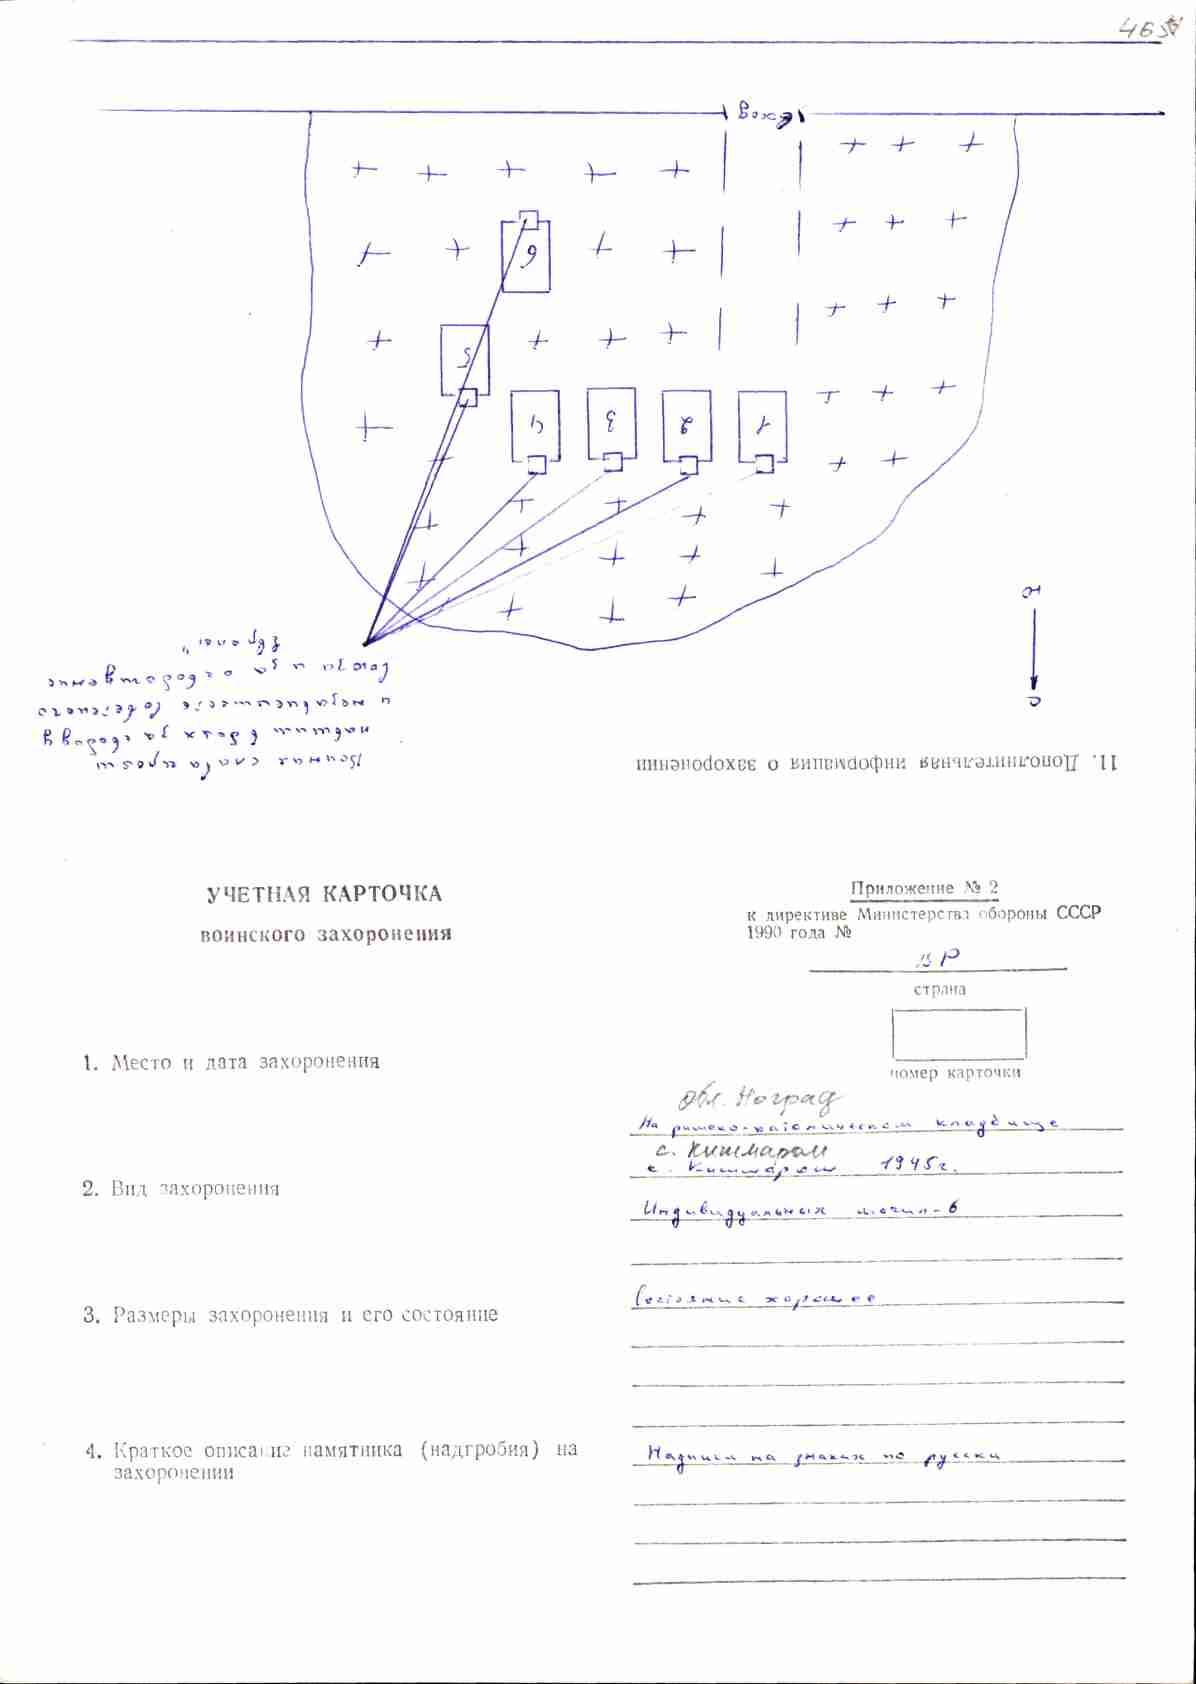 465
вход
6
5
4
3
2
1
Ю
С
Вечная слава героям
павшим в боях за свободу
и независимость Советского
Союза и за освобождение
Европы"
11. Дополнительная информация о захоронении
УЧЕТНАЯ КАРТОЧКА
воинского захоронения
Приложение № 2
к директиве Министерства обороны СССР
1990 года №
ВР
страна
номер карточки
1. Место и дата захоронения
обл. Ноград
На римско-католическом кладбище
с. Кишмарош
с. Кишмарош 1945г.
2. Вид захоронения
Индивидуальных могил-6
3. Размеры захоронения и его состояние
Состояние хорошее
4. Краткое описание памятника (надгробия) на
захоронении
Надписи на знаках по русски